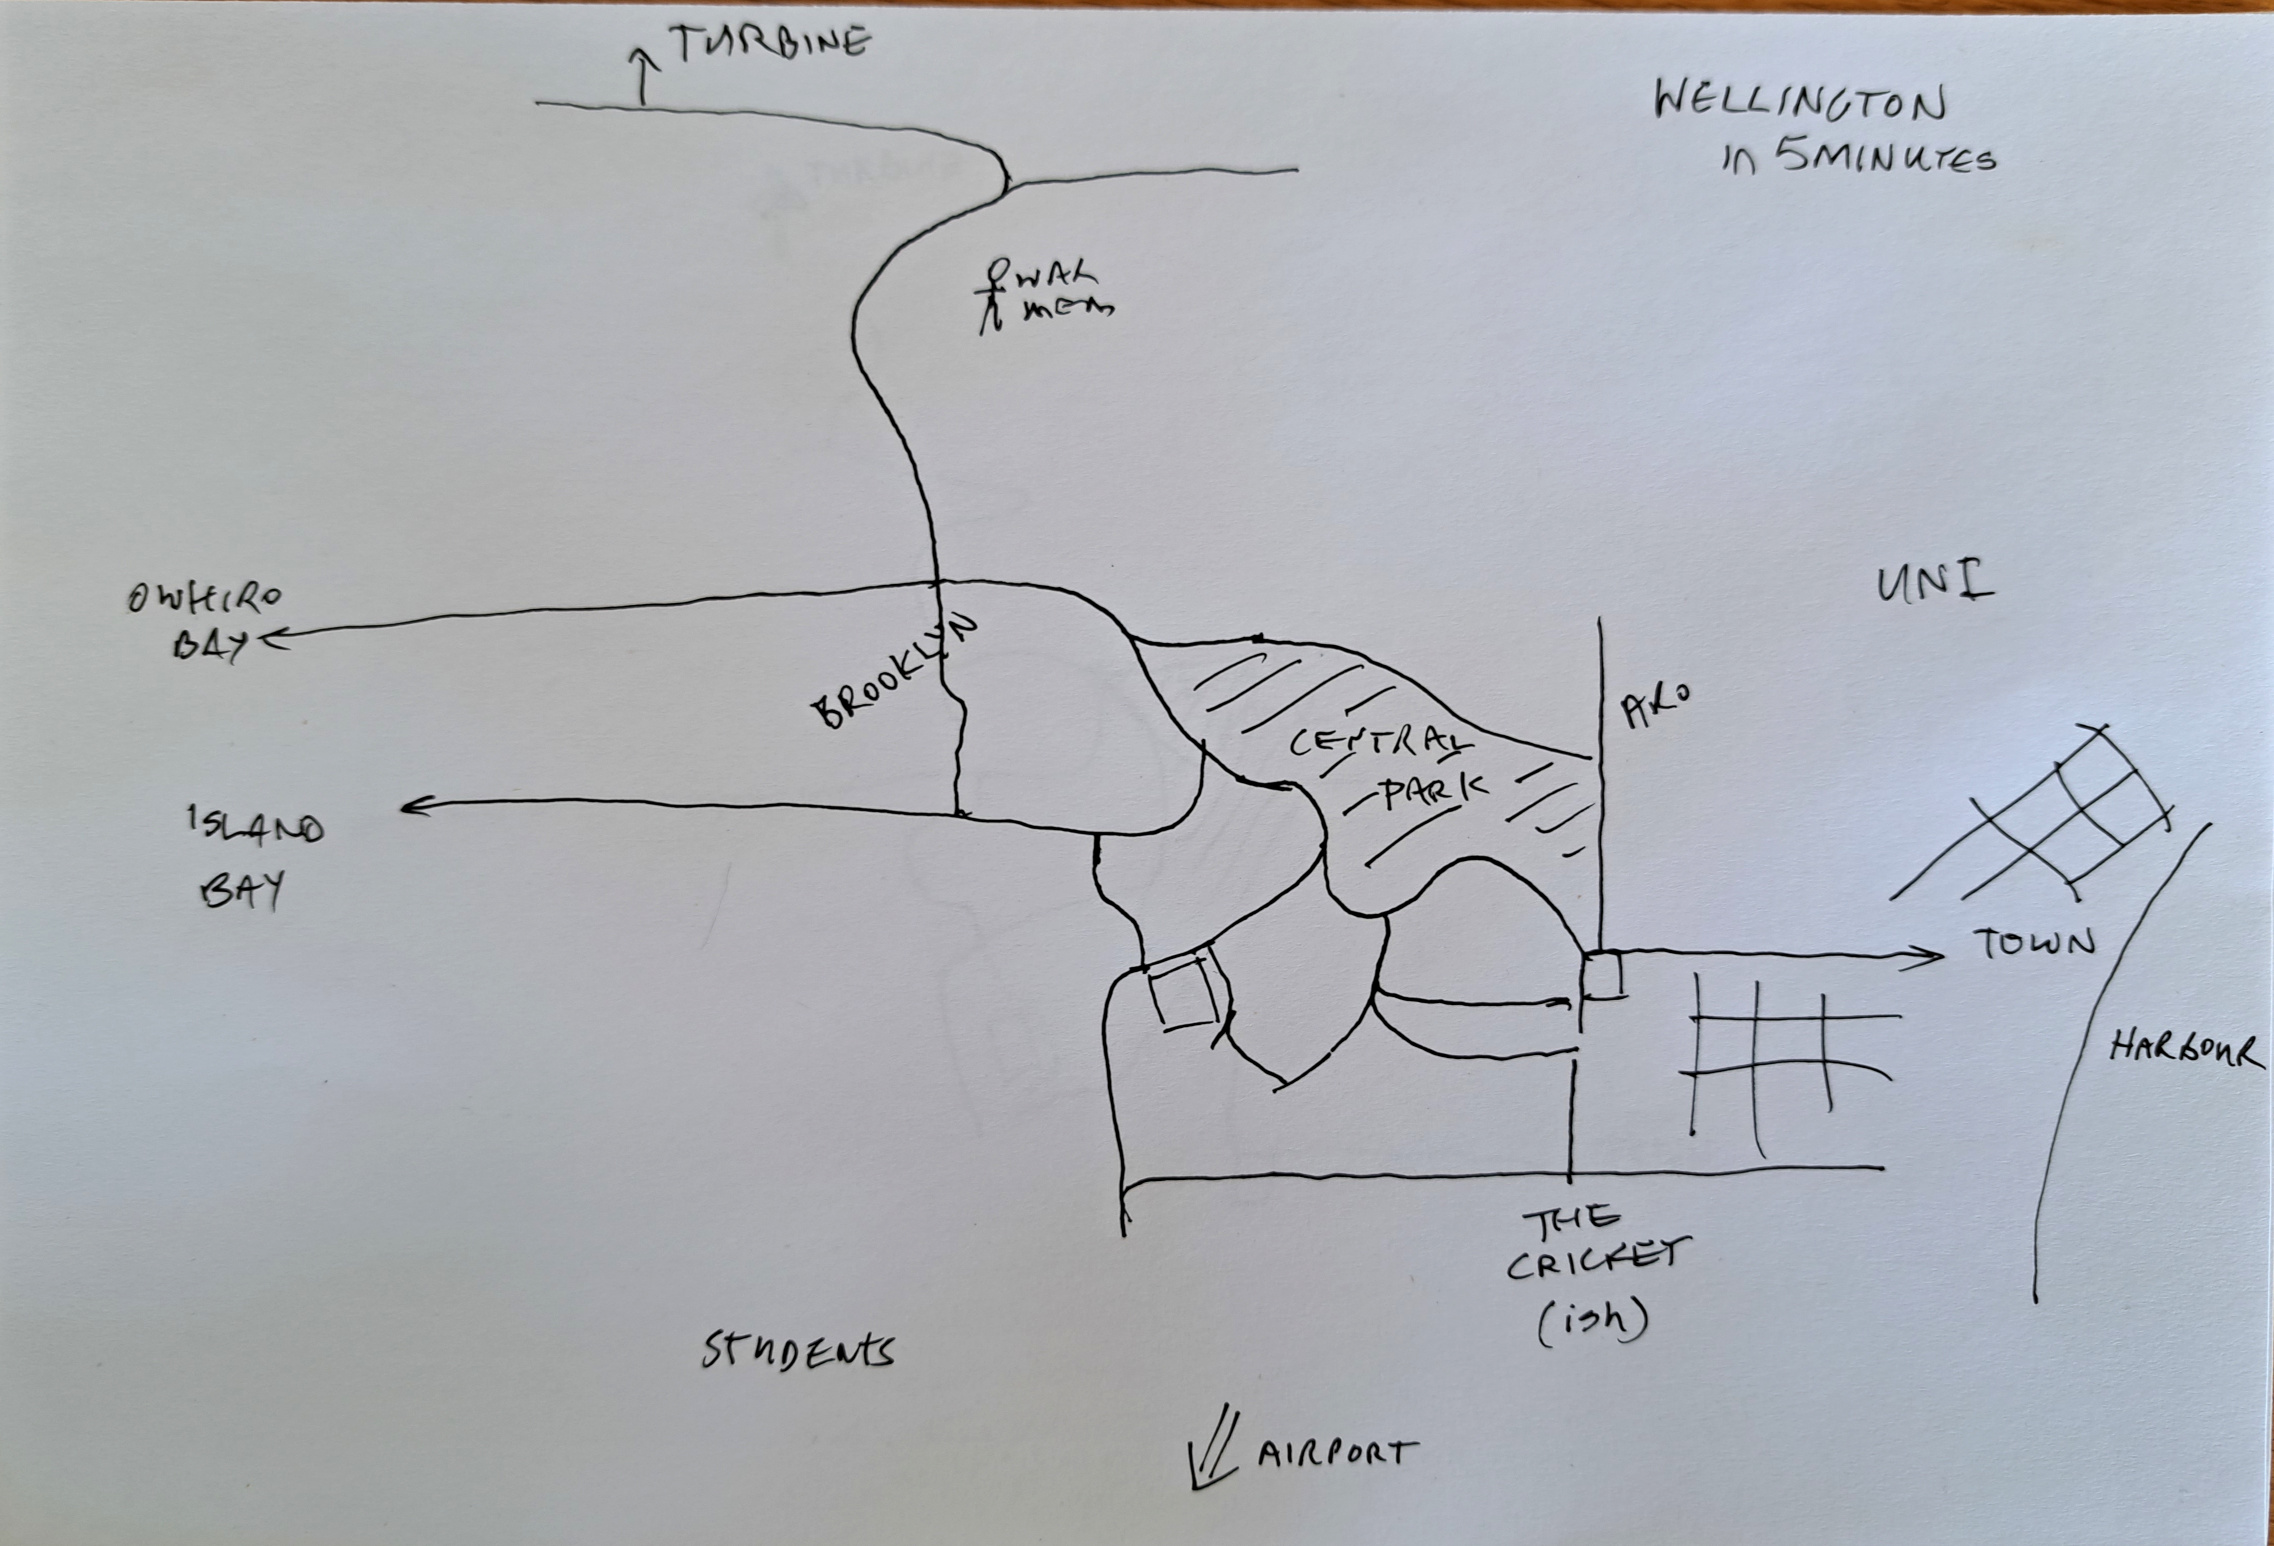 TURBINE
WELLINGTON
in 5 MINUTES
WAR
MEM
OWHIRO
BAY
UNI
BROOKLYN
ARO
CENTRAL
PARK
ISLAND
BAY
TOWN
HARBOUR
THE
CRICKET
(ish)
STUDENTS
AIRPORT